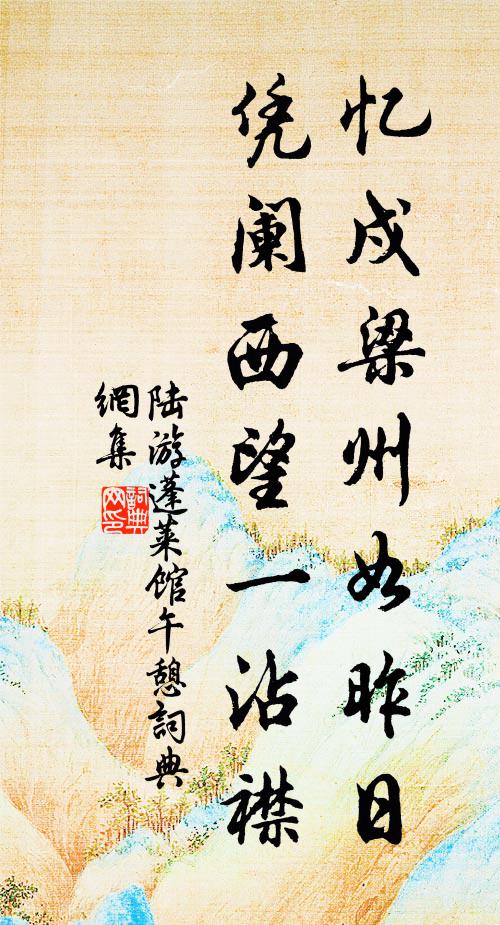 忆戍梁州如昨日
凭阑西望一沾襟
陆游蓬莱馆午憩詞典
網集
詞典
网印